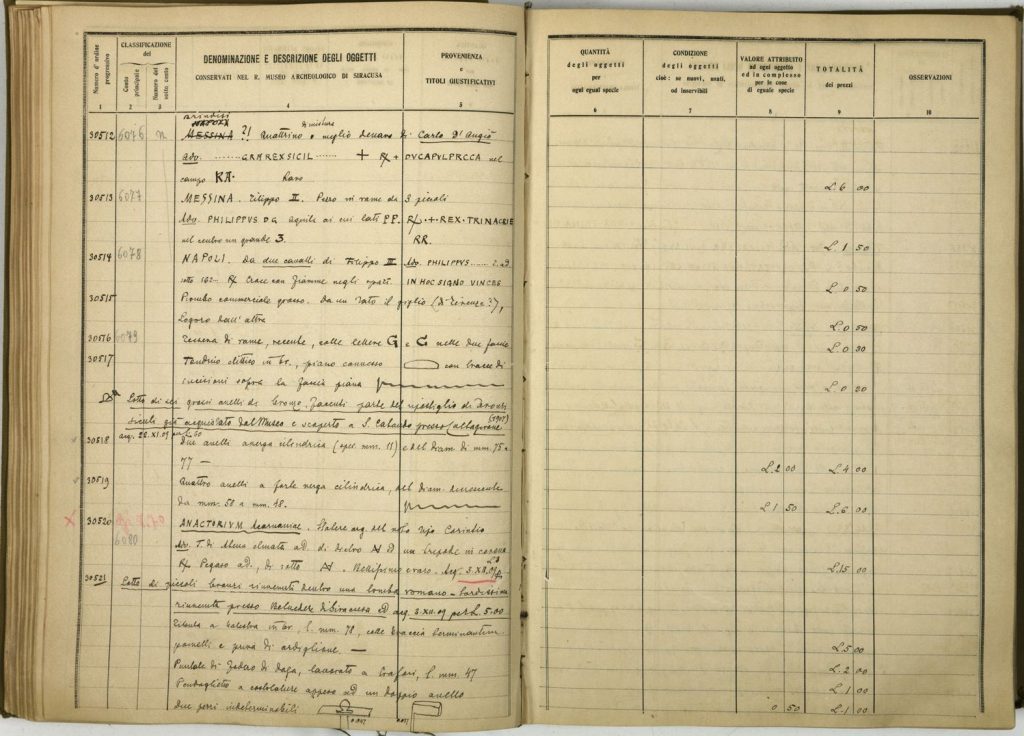 Numero d'ordine progressivo
CLASSIFICAZIONE
del
Conto principale
Numero del sotto conto
DENOMINAZIONE E DESCRIZIONE DEGLI OGGETTI
CONSERVATI NEL R. MUSEO ARCHEOLOGICO DI SIRACUSA
PROVENIENZA
e
TITOLI GIUSTIFICATIVI
1 2 3 4 5
brindisi
NAPOLI di mistura
30512 6076 n MESSINA ?! Quattrino o meglio denaro di Carlo D'Angiò
Adv. ........ GRA REX SICIL ...... + R/ + DVC APVL PRCCA nel
campo KA. Raro
30513 6077 MESSINA. Filippo II. Pezzo in rame da 3 piccoli
Adv. PHILIPPVS D G aquila ai cui lati P.P. R/ . + . REX . TRINACRIE
nel centro un grande 3. RR.
30514 6078 NAPOLI. Da due cavalli di Filippo III Adv. PHILIPPVS
sotto 162.. R/ Croce con fiamme negli spazi. IN HOC SIGNO VINCES
30515 Piombo commerciale grosso. Da un lato il giglio (di Firenze?),
Logoro dall'altra
30516 6079 Tessera di rame, recente, colle lettere G e C nelle due faccie
30517 Tondino elittico in br., piano convesso con tracce di
incisioni sopra la faccia piana
Lotto di sei grossi anelli di bronzo. Facenti parte del ripostiglio di bronzi
siculi già acquistato dal Museo e scoperto a S. Cataudo presso Caltagirone
acq. 22.XI.09
30518 Due anelli a verga cilindrica (spes. mm. 11) e del diam di mm. 75 e
77 —
30519 Quattro anelli a forte verga cilindrica, del diam. decrescente
da mm. 58 a mm. 48.
X 30520 6080 ANACTORIVM Acarnaniae. Statere arg. del noto tipo Corintio
Adv. T. di Atena elmata ad. di dietro un tripode in corona
R/ Pegaso ad., di sotto . Bellissimo e raro. Acq. 3.XII.09
30521 Lotto di piccoli bronzi rinvenuti dentro una tomba romano-tardissima
rinvenuta presso Belvedere di Siracusa ed acq. 3.XII.09 per L. 5.00
Fibula a balestra in br., l. mm. 78, colle braccia terminanti in
pomelli e priva di ardiglione. —
Puntale di fodero di daga, lavorato a trafori, l. mm. 47
Pendaglietto a costolature appeso ad un doppio anello
Due pezzi indeterminabili
QUANTITÀ
degli oggetti
per
ogni egual specie
CONDIZIONE
degli oggetti
cioè: se nuovi, usati,
od inservibili
VALORE ATTRIBUITO
ad ogni oggetto
ed in complesso
per le cose
di eguale specie
TOTALITÀ
dei prezzi
OSSERVAZIONI
6 7 8 9 10
L. 6 00
L. 1 50
L. 0 50
L. 0 50
L. 0 30
L. 0 20
L. 2 00 L. 4 00
L. 1 50 L. 6 00
L. 15 00
L. 5 00
L. 2 00
L. 1 00
0 50 L. 1 00